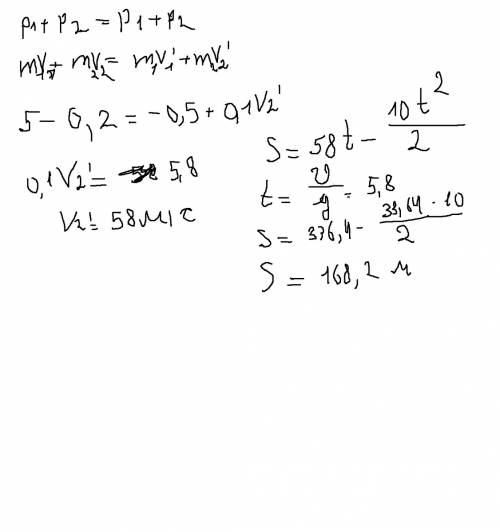 p₁ + p₂ = p₁ + p₂
mv₁ + mv₂ = m₁v₁' + m₂v₂'
5 - 0,2 = -0,5 + 0,1V₂'
0,1V₂' = 5,8
V₂' = 58 м/с
S = 58t - 10t²/2
t = v/g = 5,8
S = 336,4 - 33,64 · 10/2
S = 168,2 м